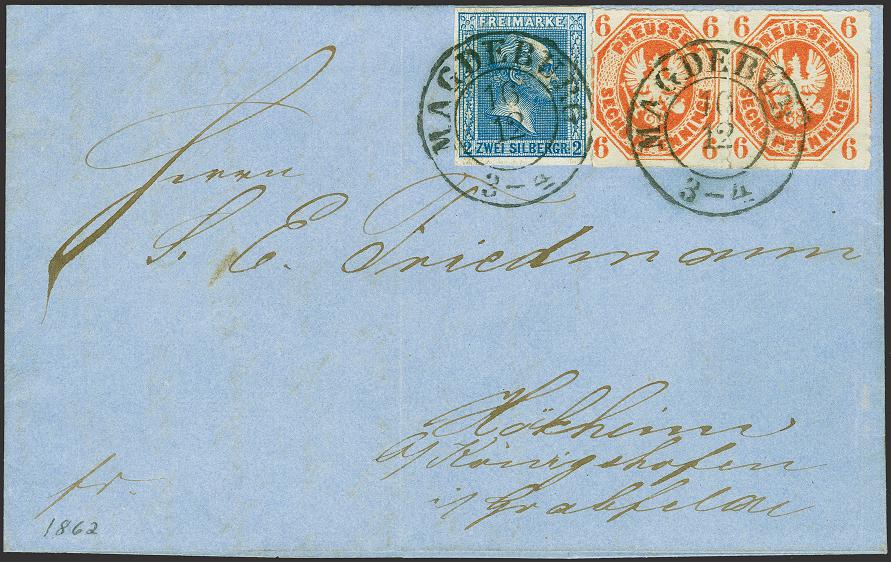 FREIMARKE
2 ZWEI SILBERGR. 2
6 6
PREUSSEN
SECHS PFENNINGE
6 6
6 6
PREUSSEN
SECHS PFENNINGE
6 6
MAGDEBURG
16
12
3-4
MAGDEBURG
16
12
3-4
Herrn
S. E. Friedmann
Höchheim
b/Königshofen
i/Grabfelde
fr.
1862